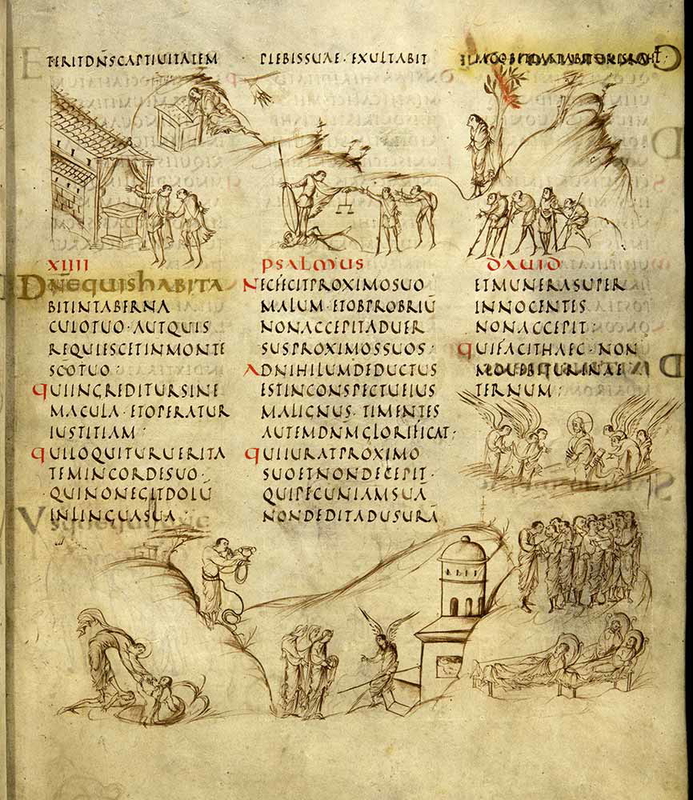 TERITDNSCAPTIUITATEM
PLEBISSUAE·EXULTABIT
XIIII
PSALMUS
DAUID
DNEQUISHABITA
BITINTABERNA
CULOTUO·AUTQUIS
REQUIESCETINMONTE
SCOTUO·
QUIINGREDITURSINE
MACULA·ETOPERATUR
IUSTITIAM·
QUILOQUITURUERITA
TEMINCORDESUO·
QUINONEGITDOLŪ
INLINGUASUA·
NECFECITPROXIMOSUO
MALUM·ETOBPROBRIŪ
NONACCEPITADUER
SUSPROXIMOSSUOS·
ADNIHILUMDEDUCTUS
ESTINCONSPECTUEIUS
MALIGNUS·TIMENTES
AUTEMDNMGLORIFICAT·
QUIIURATPROXIMO
SUOETNONDECEPIT·
QUIPECUNIAMSUĀ
NONDEDITADUSURĀ
ETMUNERASUPER
INNOCENTES
NONACCEPIT·
QUIFACITHAEC·NON
TERNUM·